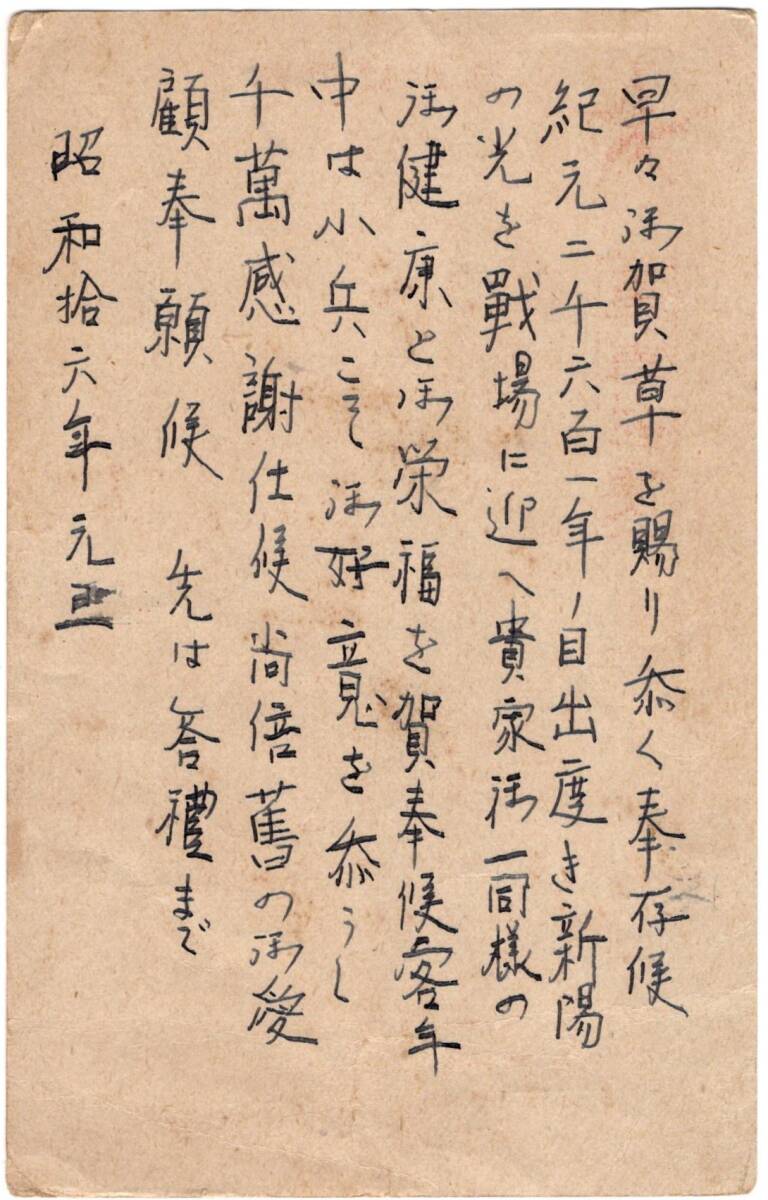 早々御賀草を賜り忝く奉存候
紀元二千六百一年ノ目出度き新陽
の光を戰場に迎へ貴家御一同様の
御健康と御栄福を賀奉候客年
中は小兵こそ御好意を忝うし
千萬感謝仕候尚倍舊の御愛
顧奉願候　先は答禮まで
昭和拾六年元旦